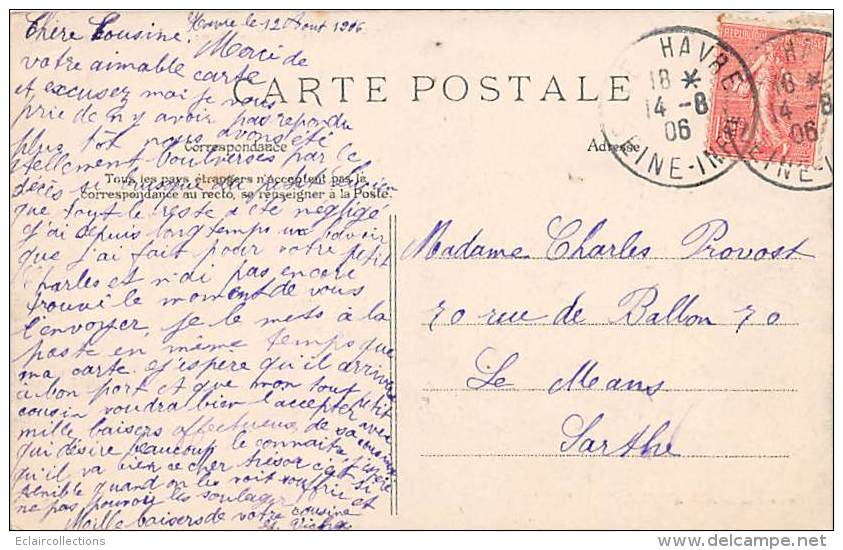 Havre le 12 Aout 1906
Chère Cousine.
Merci de
votre aimable carte
et excusez moi je vous
prie de n'y avoir pas repondu
plus tôt nous avons été
tellement boulversés par le
décès si brusque du petit
que tout le reste a été négligé
j'ai depuis longtemps un bavoir
que j'ai fait pour votre petit
Charles et n'ai pas encore
trouvé le moment de vous
l'envoyer, je le mets à la
poste en même temps que
ma carte. J'espère qu'il arrivera
à bon port et que mon tout petit
cousin voudra bien l'accepter avec
mille baisers affectueux de sa cousine
qui désire beaucoup le connaître j'espère
qu'il va bien ce cher trésor c'est si
penible quand on les voit souffrir et
ne pas pouvoir les soulager
Mille baisers de votre cousine
CARTE POSTALE
Correspondance
Adresse
Tous les pays étrangers n'acceptent pas la
correspondance au recto, se renseigner à la Poste.
HAVRE
18 *
14 -8
06
SEINE-INFRE
HAV
18 *
14 -8
06
EINE-I
Madame Charles Provost
70 rue de Ballon 70
Le Mans
Sarthe
Eclaircollections
delcampe.net